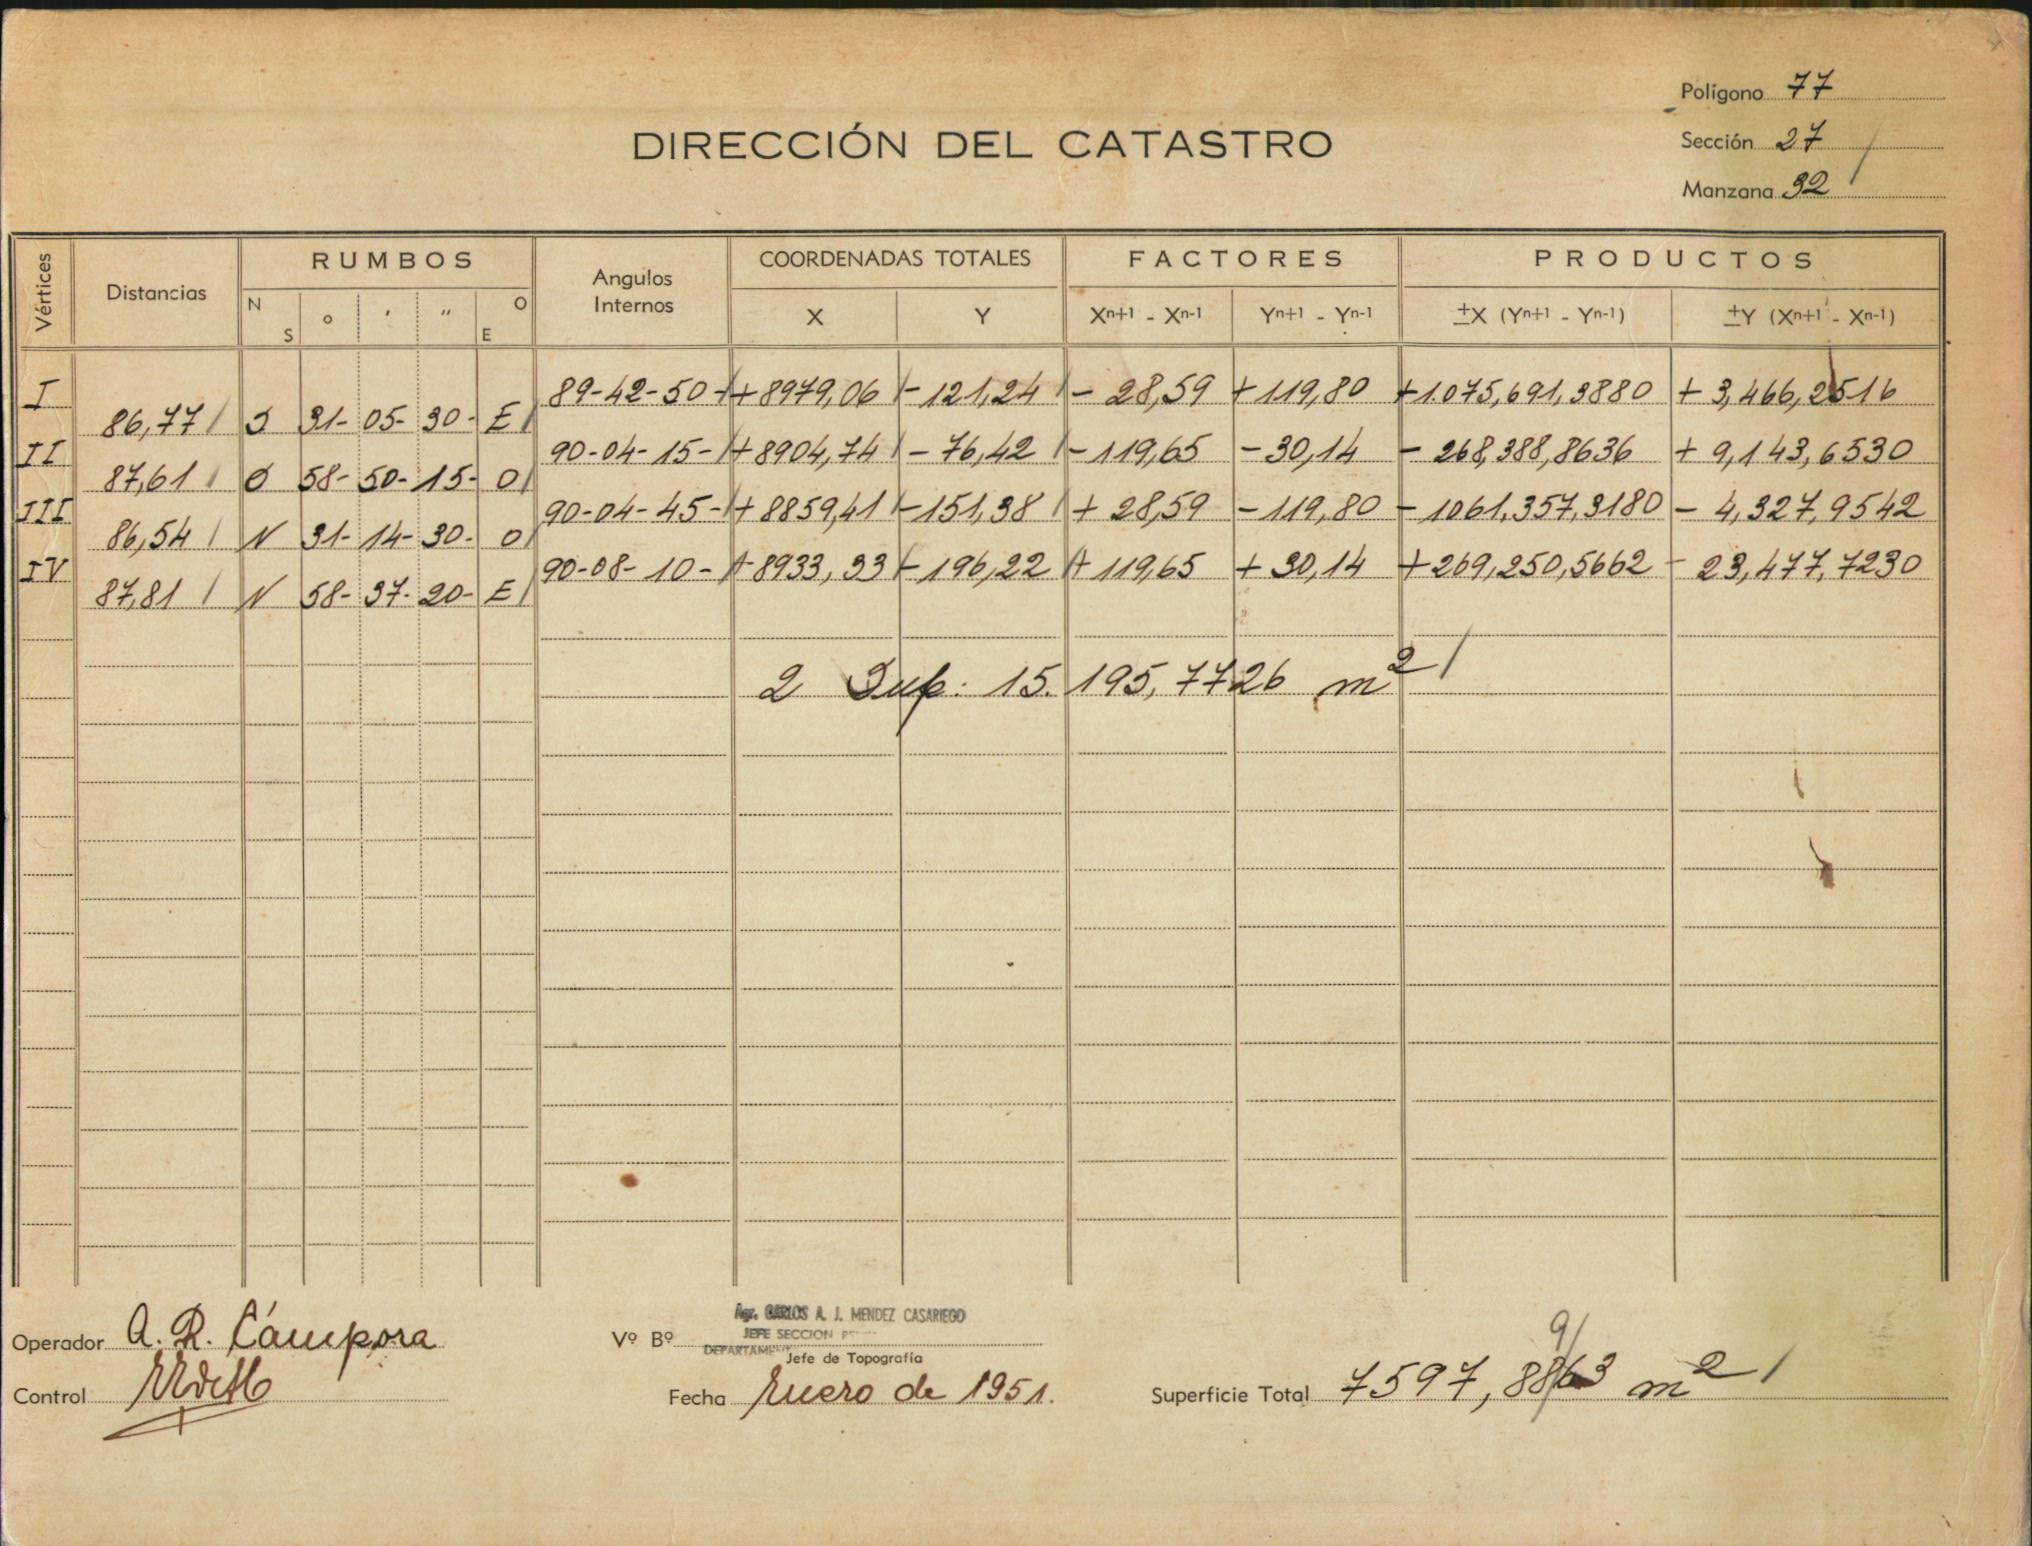 Polígono 77
DIRECCIÓN DEL CATASTRO
Sección 27
Manzana 32
Vértices Distancias RUMBOS Angulos Internos COORDENADAS TOTALES FACTORES PRODUCTOS
N S o ' " O E X Y Xn+1 - Xn-1 Yn+1 - Yn-1 ±X (Yn+1 - Yn-1) ±Y (Xn+1 - Xn-1)
I 89-42-50- +8979,06 -121,24 - 28,59 +119,80 +1.075,691,3880 + 3,466,2516
86,77 S 31- 05- 30- E
II 90-04-15- +8904,74 - 76,42 -119,65 -30,14 - 268,388,8636 + 9,143,6530
87,61 58- 50- 15- O
III 90-04-45- +8859,41 -151,38 + 28,59 -119,80 - 1061,357,3180 - 4,327,9542
86,54 N 31- 14- 30- O
IV 90-08-10- +8933,33 -196,22 + 119,65 + 30,14 +269,250,5662 - 23,477,7230
87,81 N 58- 37- 20- E
2 Sup: 15.195,7726 m²
Agr. CARLOS A. J. MENDEZ CASARIEGO
Operador A. R. Cámpora Vº Bº JEFE SECCION
Jefe de Topografía
9
Control Fecha Enero de 1951. Superficie Total 7597,8863 m²